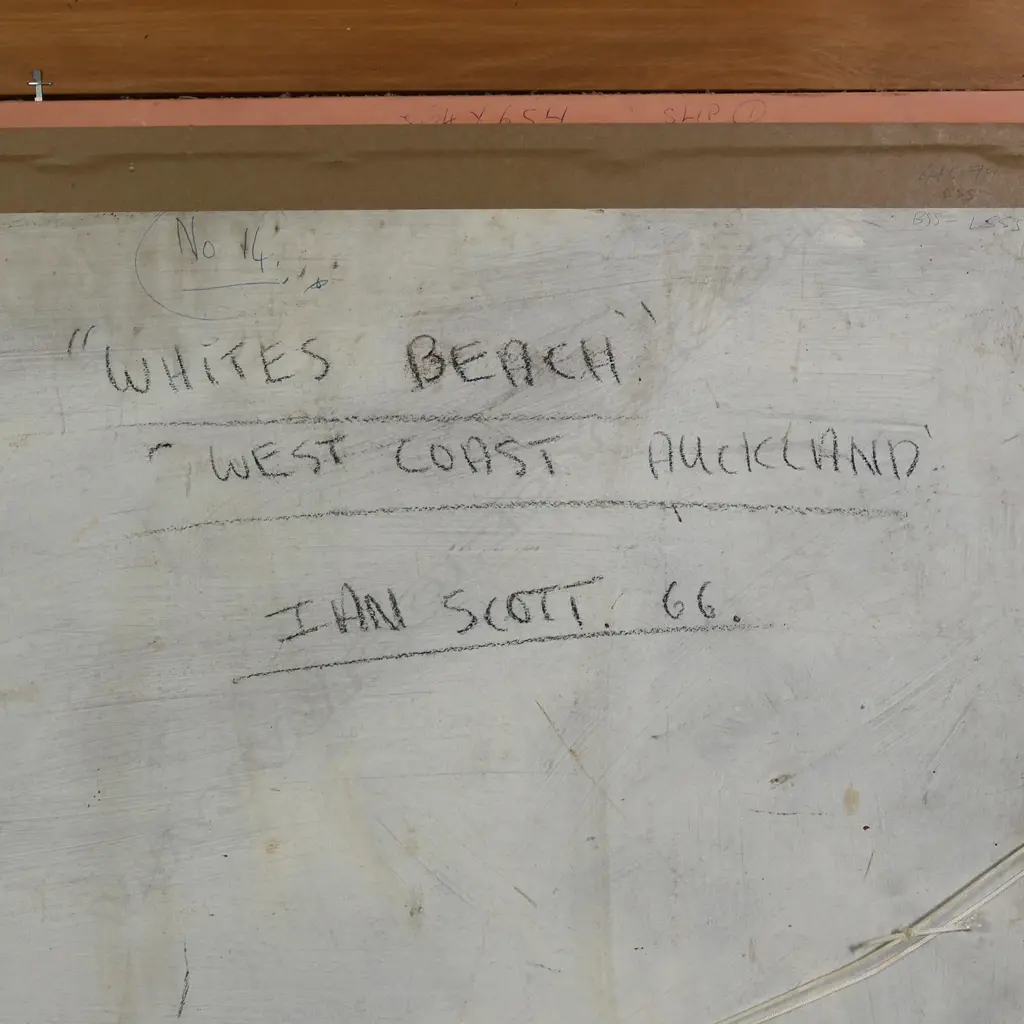 SLIP 1
No 14.
"WHITES BEACH."
"WEST COAST AUCKLAND'.
IAN SCOTT. 66.